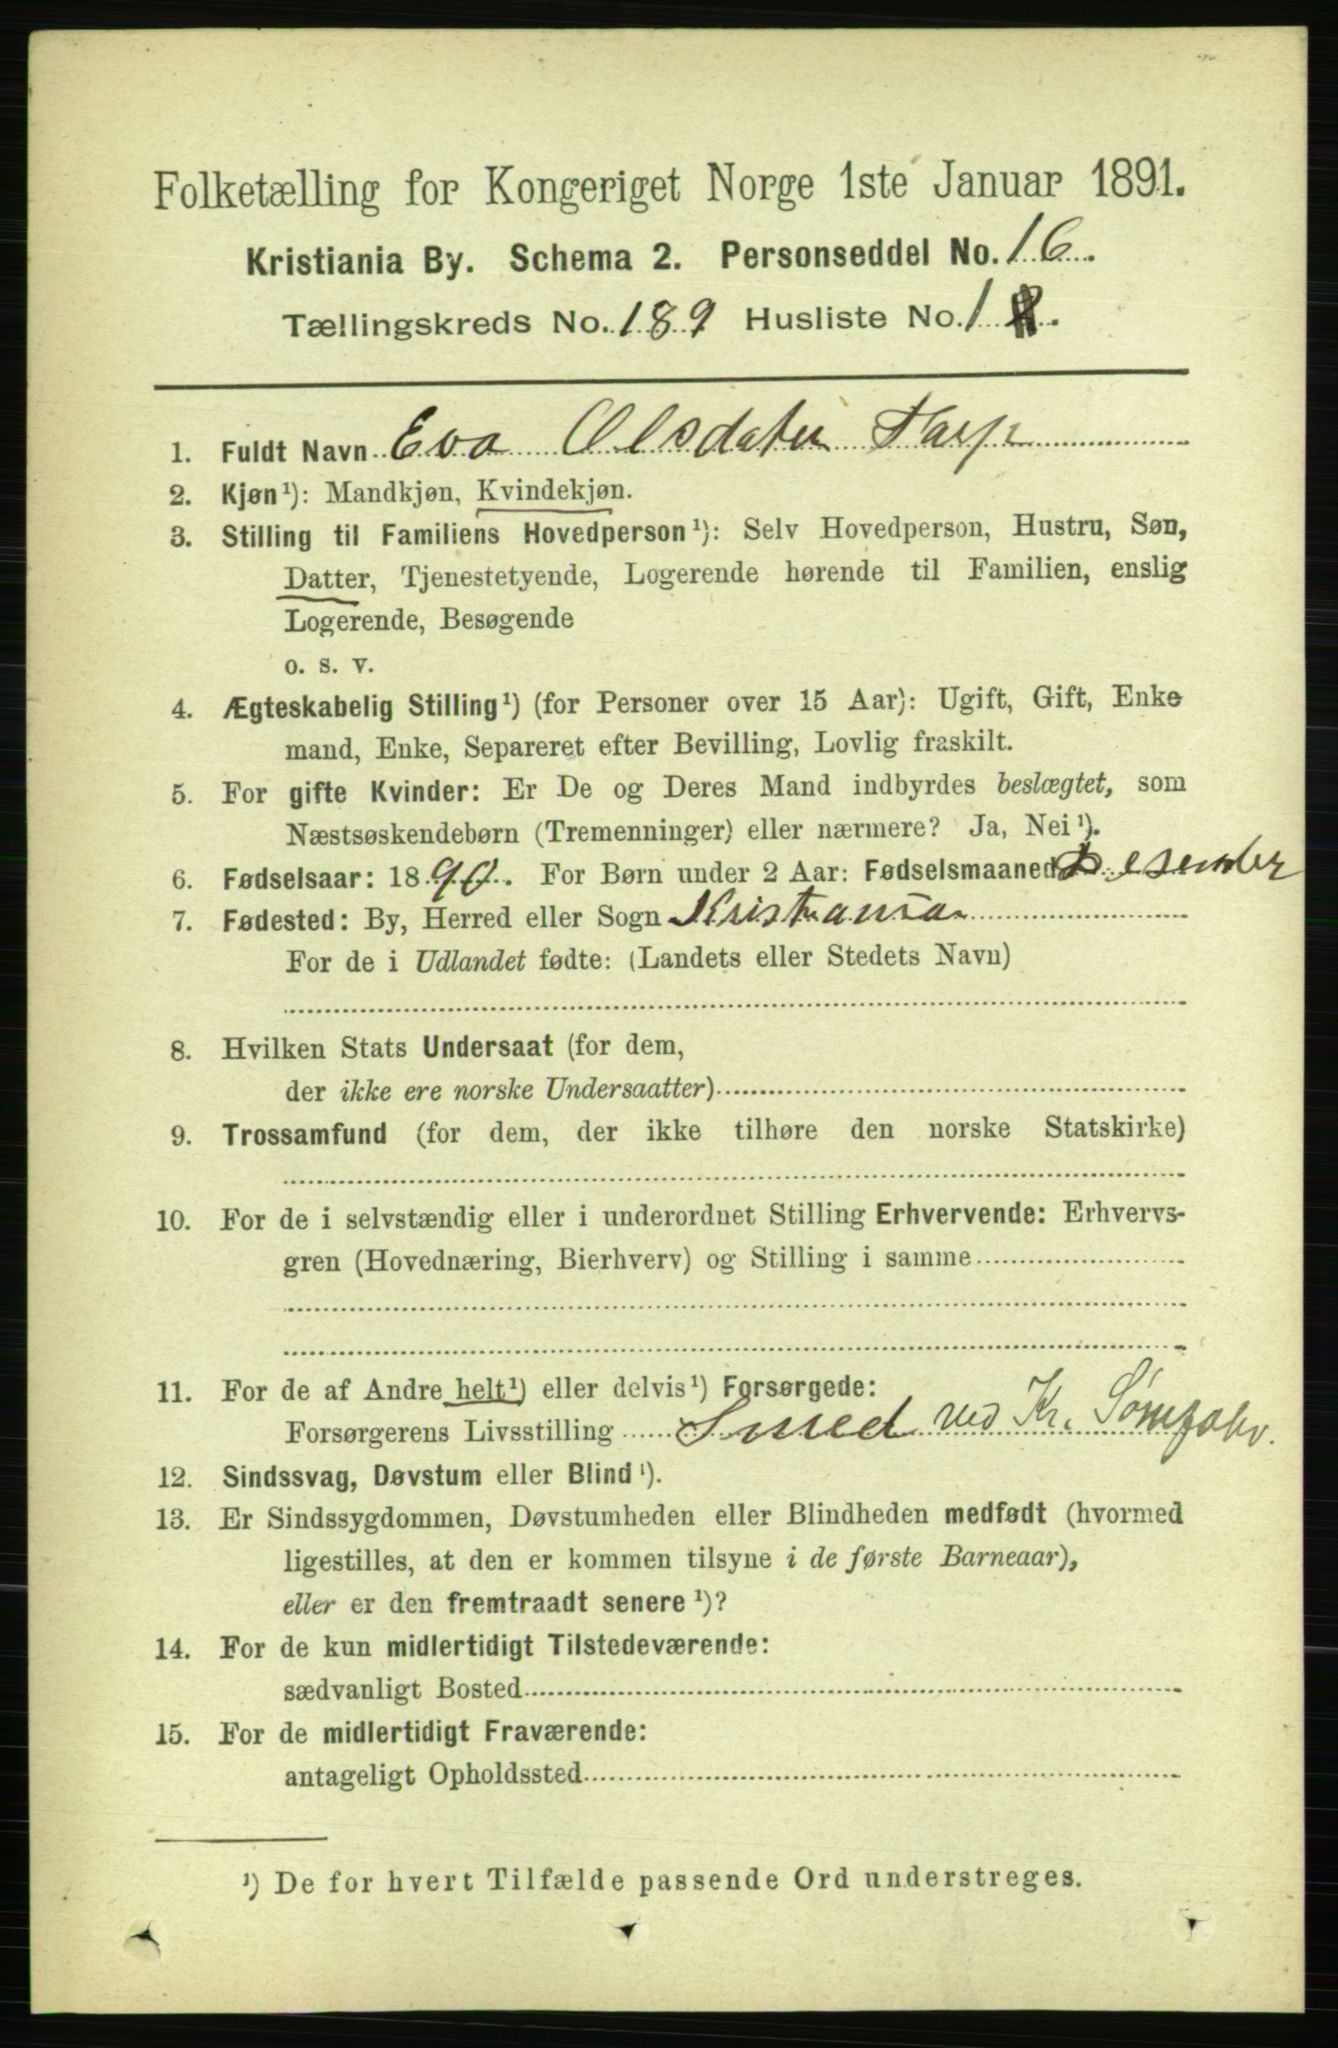 Folketælling for Kongeriget Norge 1ste Januar 1891.
Kristiania By. Schema 2. Personseddel No. 16.
Tællingskreds No. 189 Husliste No. 1
1. Fuldt Navn Eva Olsdatter
2. Kjøn¹): Mandkjøn, Kvindekjøn.
3. Stilling til Familiens Hovedperson¹): Selv Hovedperson, Hustru, Søn,
Datter, Tjenestetyende, Logerende hørende til Familien, enslig
Logerende, Besøgende
o. s. v.
4. Ægteskabelig Stilling¹) (for Personer over 15 Aar): Ugift, Gift, Enke
mand, Enke, Separeret efter Bevilling, Lovlig fraskilt.
5. For gifte Kvinder: Er De og Deres Mand indbyrdes beslægtet, som
Næstsøskendebørn (Tremenninger) eller nærmere? Ja, Nei¹).
6. Fødselsaar: 1890. For Børn under 2 Aar: Fødselsmaaned Desember
7. Fødested: By, Herred eller Sogn Kristiania
For de i Udlandet fødte: (Landets eller Stedets Navn)
8. Hvilken Stats Undersaat (for dem,
der ikke ere norske Undersaatter)
9. Trossamfund (for dem, der ikke tilhøre den norske Statskirke)
10. For de i selvstændig eller i underordnet Stilling Erhvervende: Erhvervs-
gren (Hovednæring, Bierhverv) og Stilling i samme
11. For de af Andre helt¹) eller delvis¹) Forsørgede:
Forsørgerens Livsstilling Smed ved Kr. Sømfabr.
12. Sindssvag, Døvstum eller Blind¹).
13. Er Sindssygdommen, Døvstumheden eller Blindheden medfødt (hvormed
ligestilles, at den er kommen tilsyne i de første Barneaar),
eller er den fremtraadt senere¹)?
14. For de kun midlertidigt Tilstedeværende:
sædvanligt Bosted
15. For de midlertidigt Fraværende:
antageligt Opholdssted
¹) De for hvert Tilfælde passende Ord understreges.